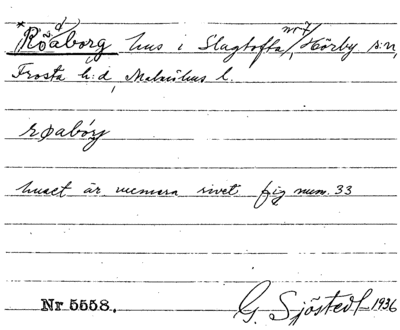 *Rösaborg hus i Slagtofta, nr 7, Hörby s:n,
Frosta h:d, Malmöhus l.
røabórg
huset är numera rivet fig num. 33
Nr 5558. G. Sjöstedt 1936